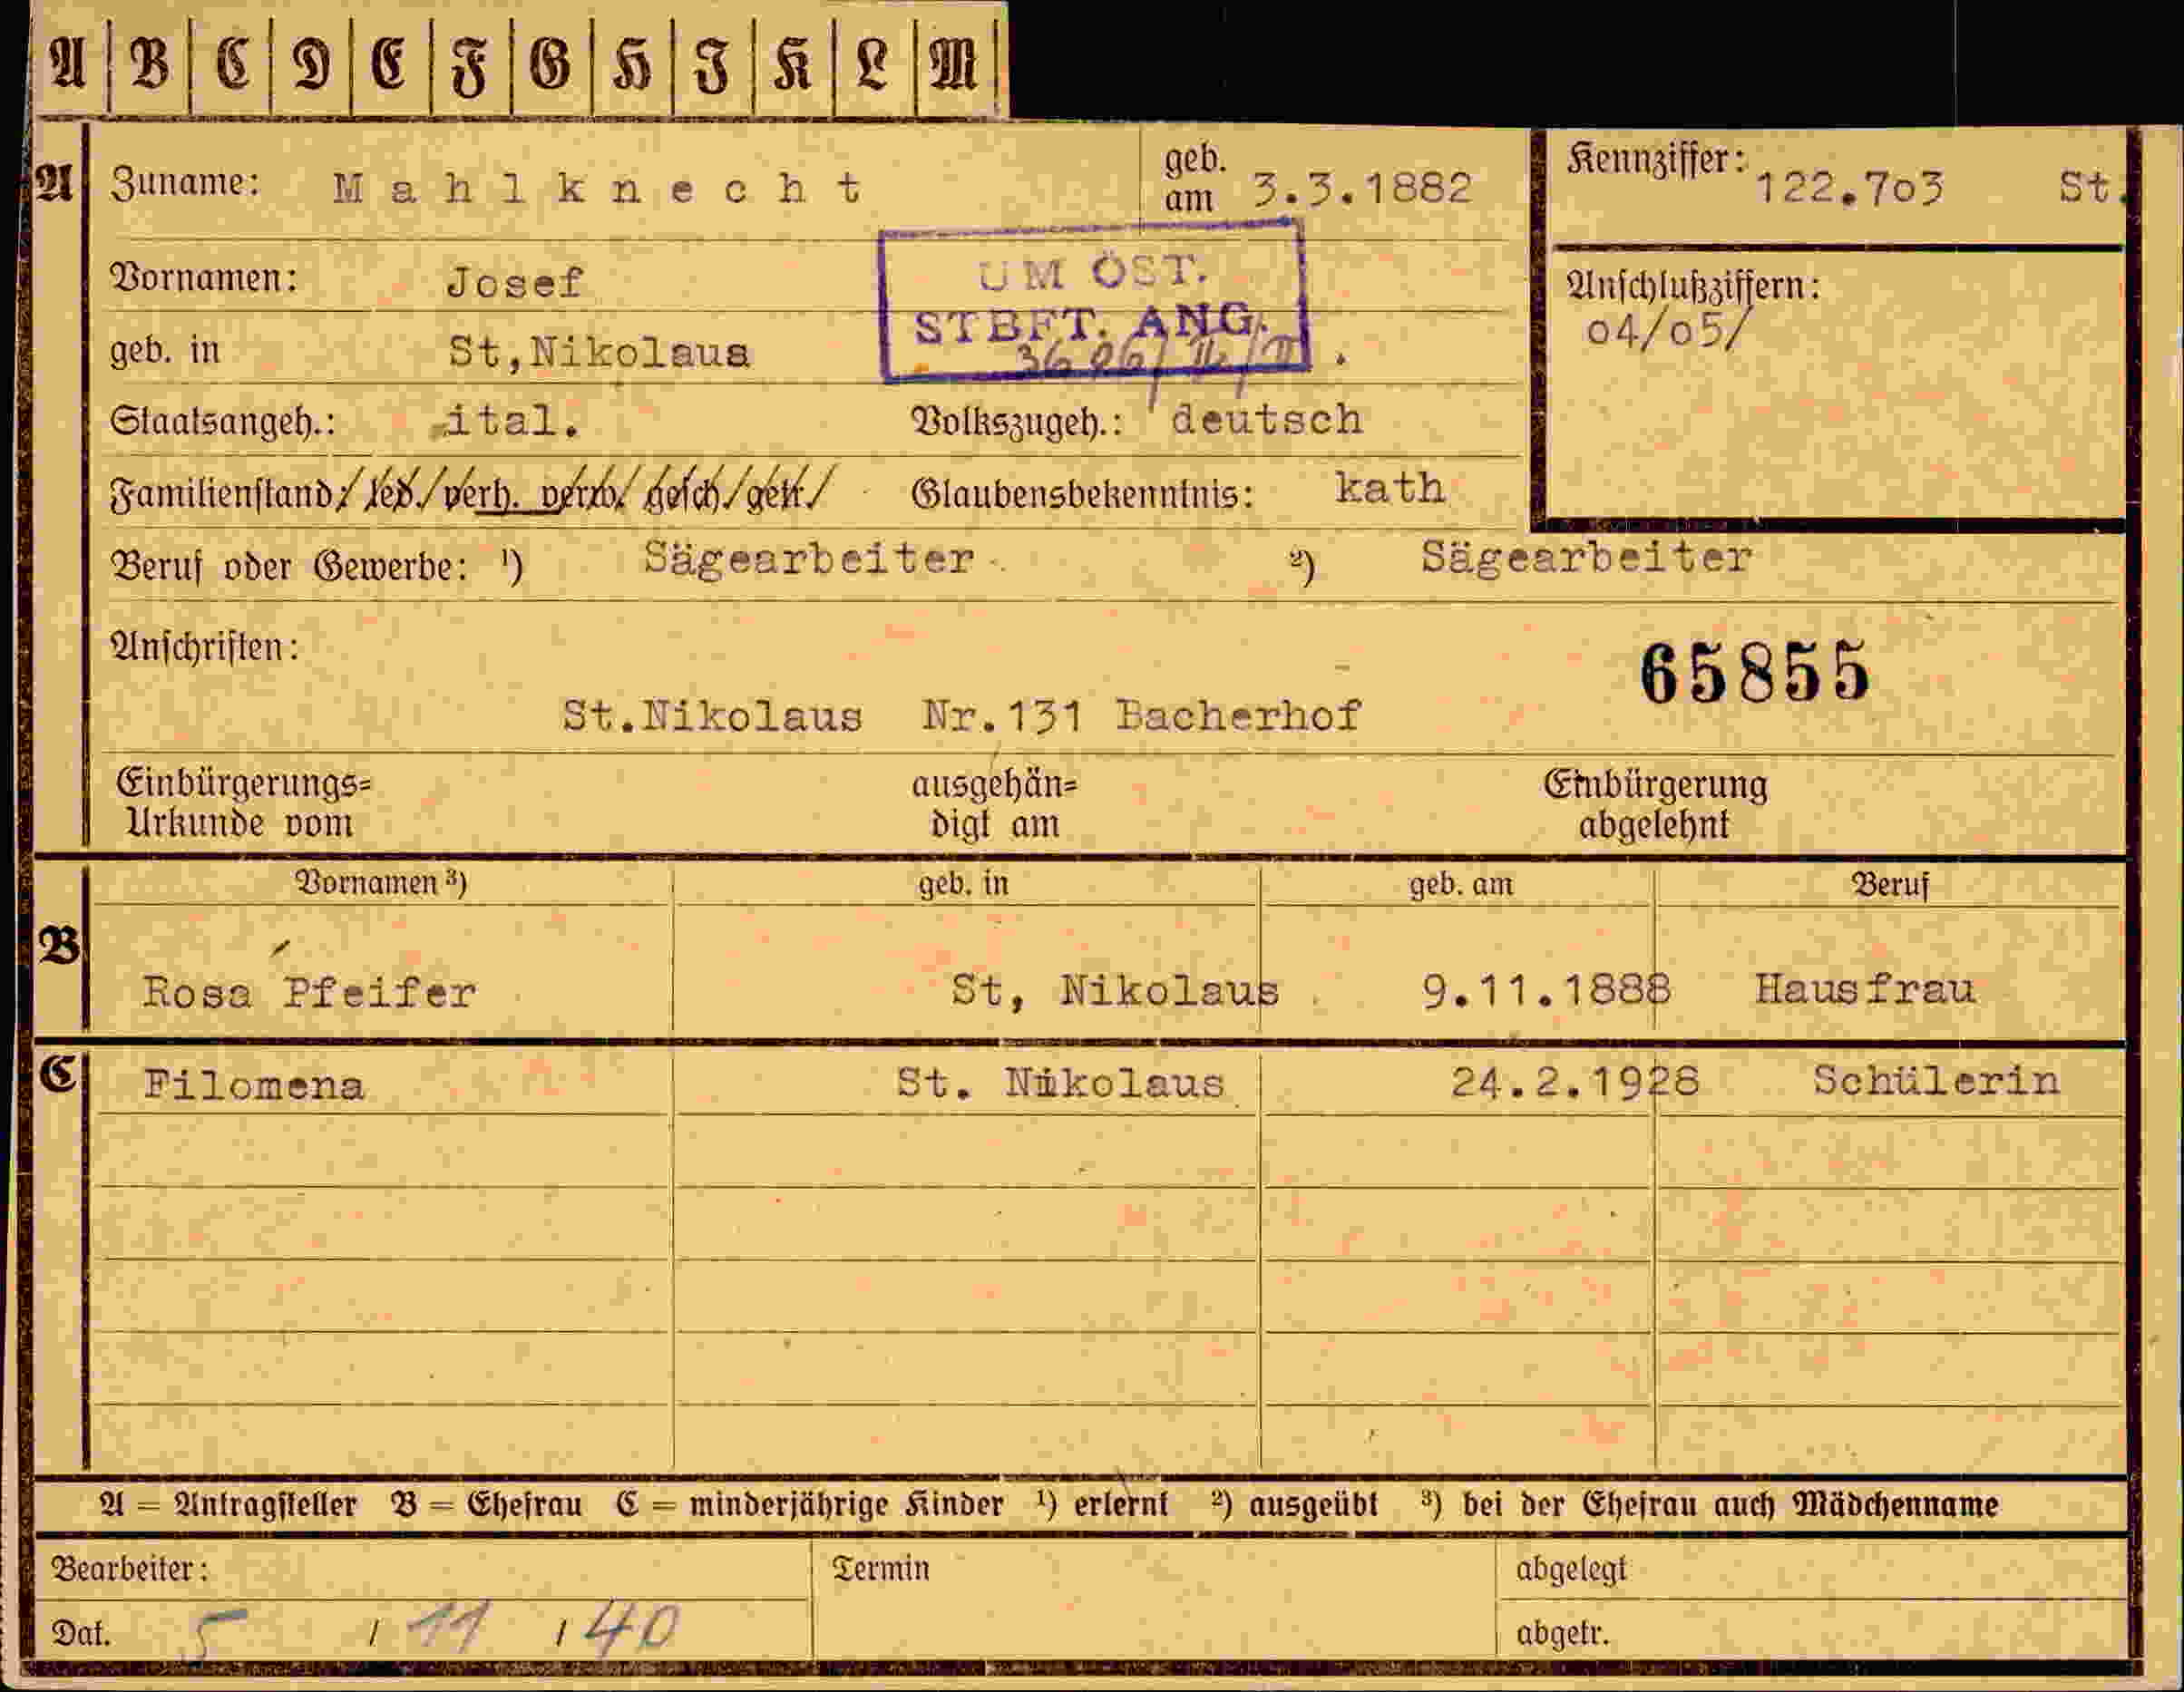 A B C D E F G H I K L M
A Zuname: Mahlknecht geb. am 3.3.1882 Kennziffer: 122.7o3 St.
Vornamen: Josef UM ÖST. Anschlußziffern:
STBFT. ANG. o4/o5/
geb. in St,Nikolaus
Staatsangeh.: ital. Volkszugeh.: deutsch
Familienstand:/led./verh. verw./gesch./getr./ Glaubensbekenntnis: kath
Beruf oder Gewerbe: 1) Sägearbeiter 2) Sägearbeiter
Anschriften: 65855
St.Nikolaus Nr.131 Bacherhof
Einbürgerungs= ausgehän= Einbürgerung
Urkunde vom digt am abgelehnt
Vornamen 3) geb. in geb. am Beruf
B Rosa Pfeifer St, Nikolaus 9.11.1888 Hausfrau
C Filomena St. Nikolaus 24.2.1928 Schülerin
A = Antragsteller B = Ehefrau C = minderjährige Kinder 1) erlernt 2) ausgeübt 3) bei der Ehefrau auch Mädchenname
Bearbeiter: Termin abgelegt
Dat. 5 / 11 / 40 abgetr.